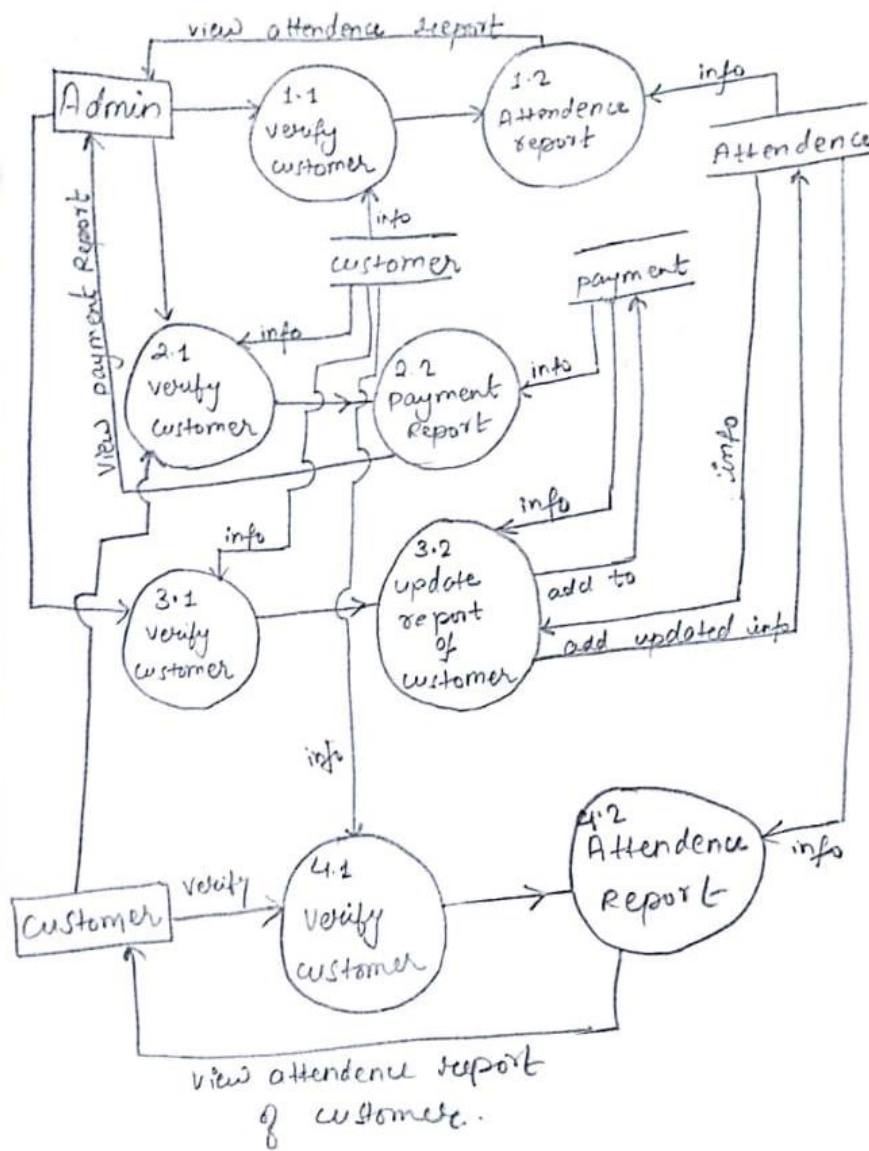 view attendence report
Admin
1.1
verify
customer
1.2
Attendence
report
info
Attendence
info
customer
payment
View payment Report
info
2.1
verify
customer
2.2
payment
Report
info
info
info
info
3.1
verify
customer
3.2
update
report
of
customer
add to
add updated info
info
4.2
Attendence
Report
info
customer
verify
4.1
verify
customer
view attendence report
of customer.